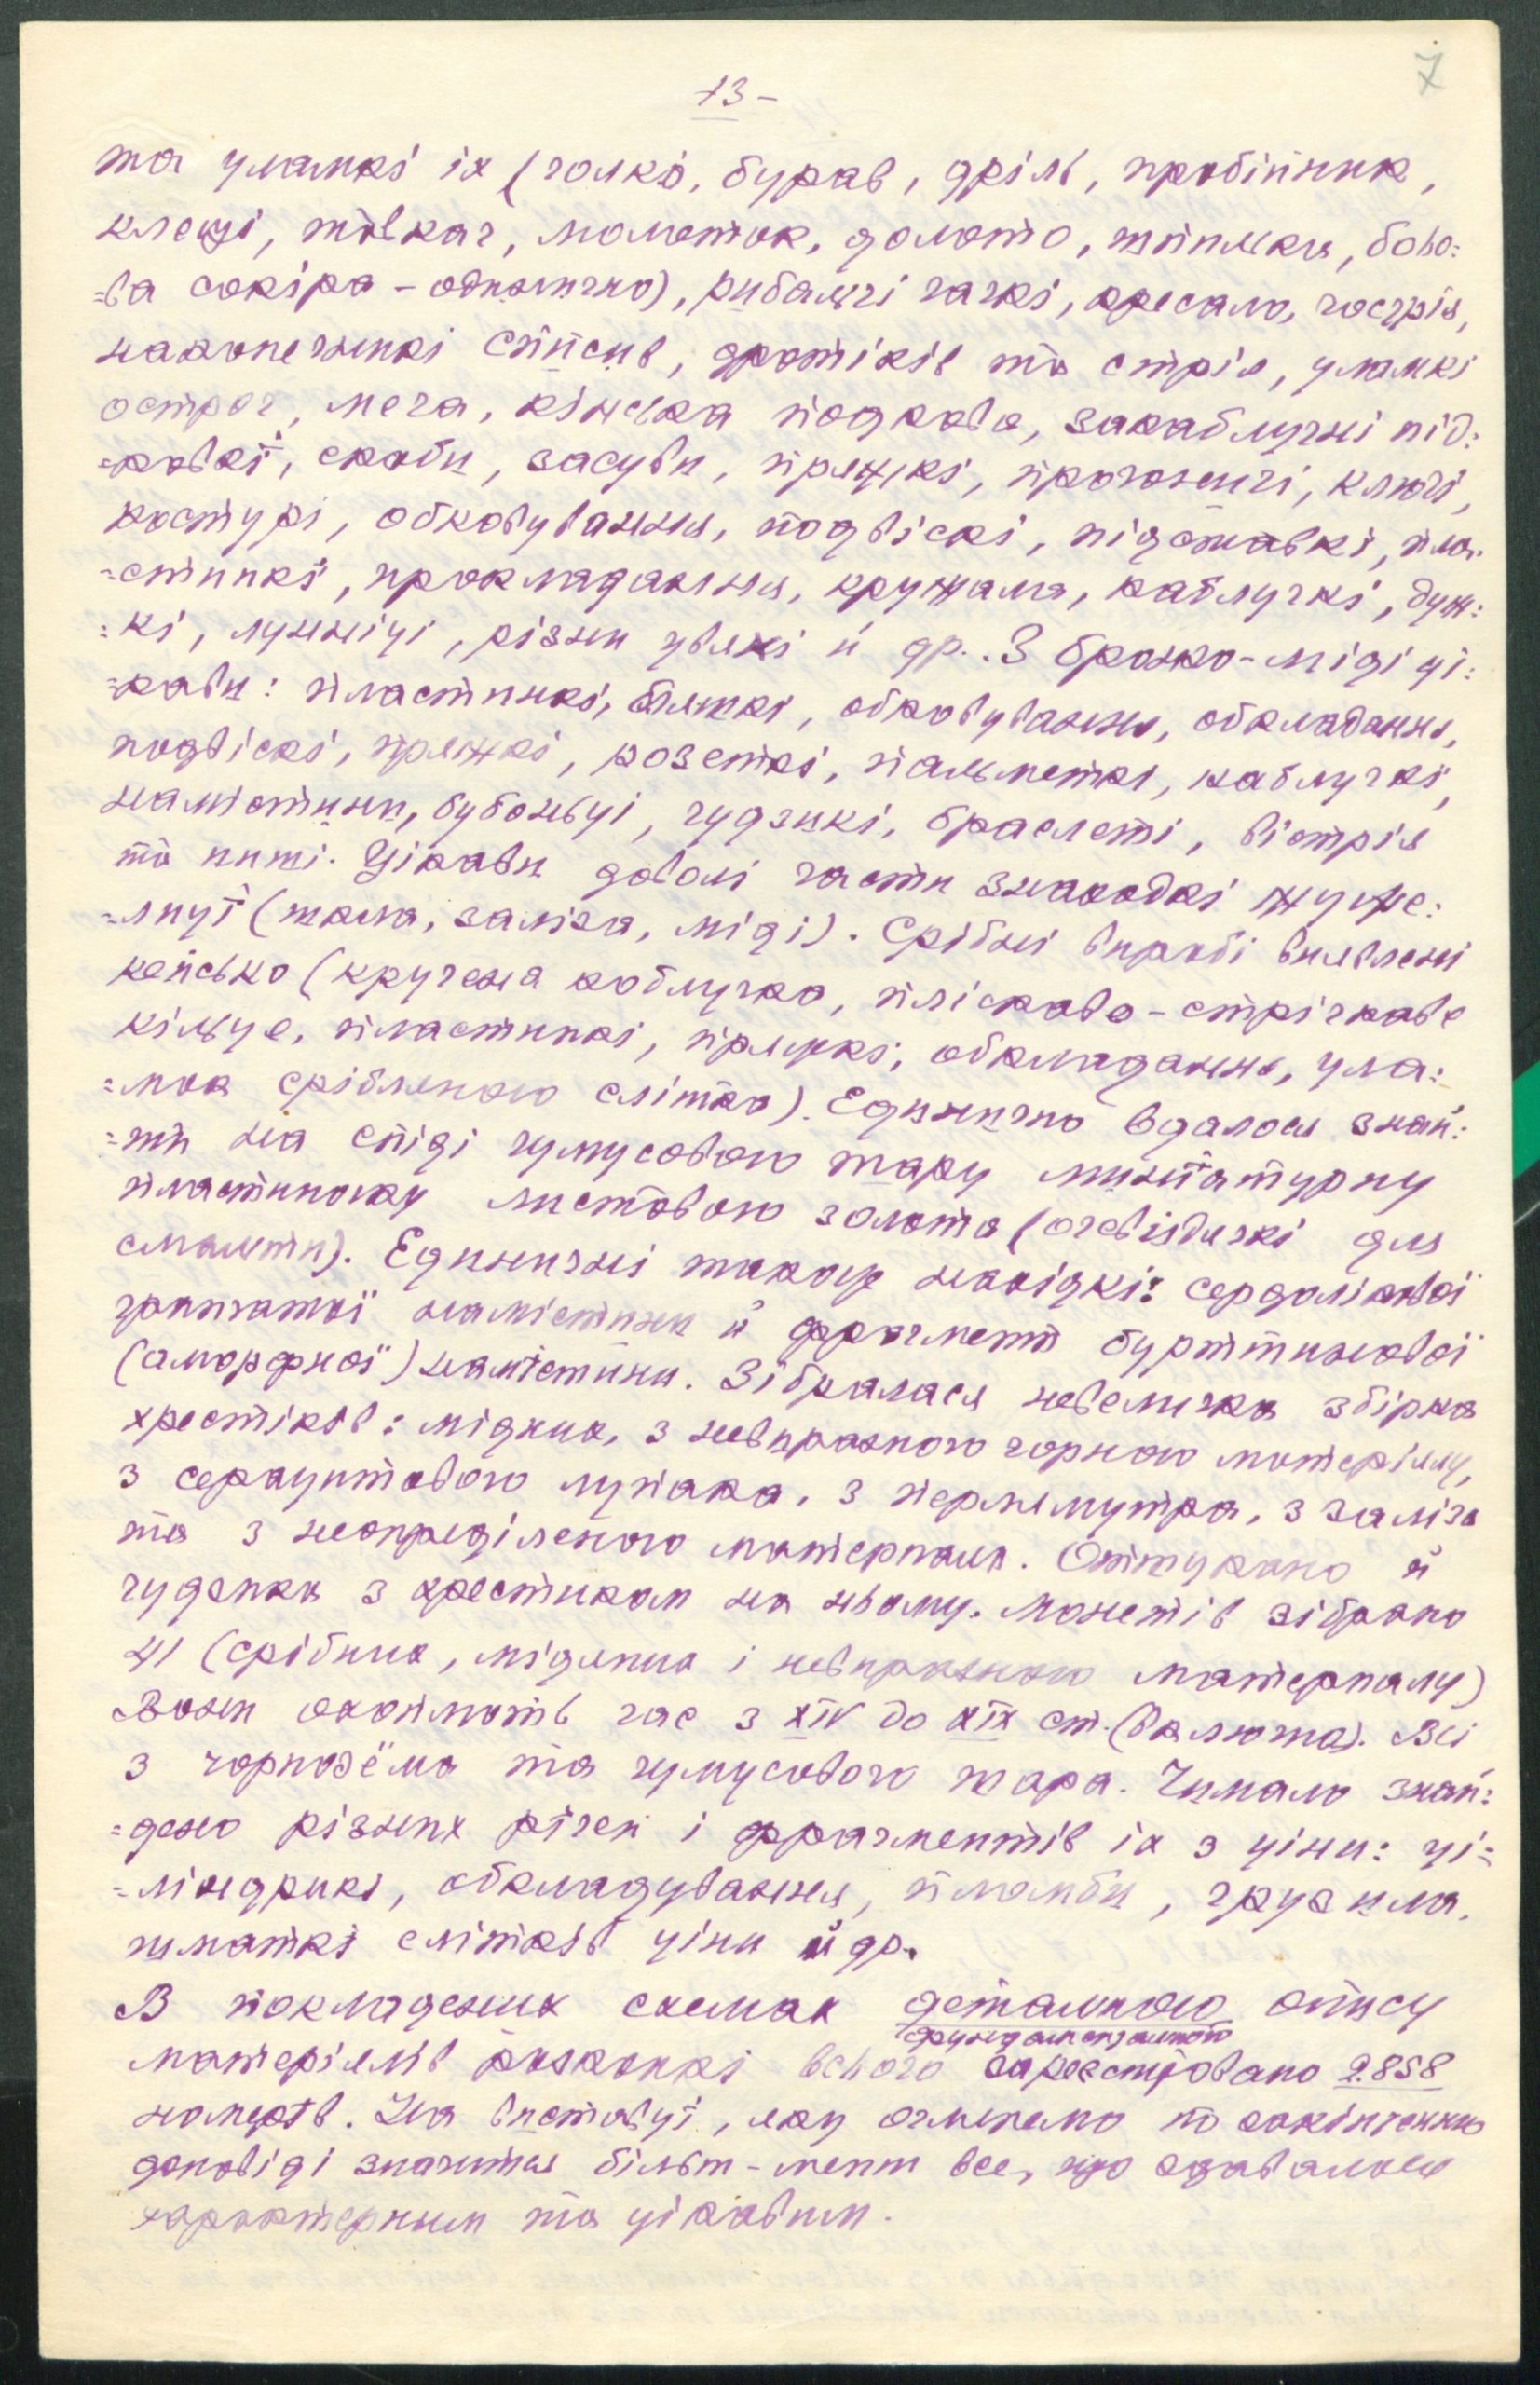 7
13 –
та уламкі іх (голкі, бурав, дріль, пробійник,
клещі, товкач, молоток, долото, шпилька, бойо=
=ва сокіра – одинично), рибальчі гачкі, кресало, гострія,
наконечникі спісив, дротіків та стріл, уламкі
острог, меча, кінська подкова, закаблучні під=
=ковкі, скоби, засуви, пряжкі, прогоничі, ключі,
костурі, обковування, подвіскі, підставкі, пла=
=стинкі, прокладання, кружала, каблучкі, дуж=
=кі, лунніці, різни цвяхі й др.. З бронзо-міді ці=
=кави: пластинкі, бляшкі, обковування, обкладання,
подвіскі, пряжкі, розеткі, пальметкі, каблучкі,
намістини, бубоньці, гудзикі, браслеті, вістрія
та инші. Цікави доволі части знаходкі жуже=
=лиці (шкла, заліза, міді). Срібни виробі виявлени
кепсько (кручена каблучка, плісковo-стрічкове
кільце, пластинкі, пряжкі, обкладання, ула=
=мок срібленого слітка). Единично вдалося знай=
=ти на споді гумусового шару миніатурну
пластиночку листового золота (очевідячкі для
смальти). Единични також нахідкі: сердоліковоі
гранчатоі намістини й фрагмент бурштиновоі
(аморфноі) намістини. Зібралася невеличка збірка
хрестіків: мідних, з невиразного чорного матеріялу,
з серпентового лупака, з перламутра, з заліза
та з неопреділеного материала. Оттукано й
гудзика з хрестиком на ньому. Монетів зібрано
41 (срібних, мідяних і невиразного материалу)
Вони охоплють час з XIV до XIX ст. (валюта). Всі
з чорнозёма та гумусового шара. Чимало знай=
=дено різних річей і фрагментів іх з ціни: ці=
=ліндрикі, обкладування, пломби, грузила,
шматкі слітків ціни й др.
В покладених схемах детального опису
фундаментального
матеріялів розкопкі всього зареєстровано 2.858
номерів. На виставці, яку оглянемо по закінченню
доповіді значиться більш-менш все, що здавалося
характерним та цікавим.